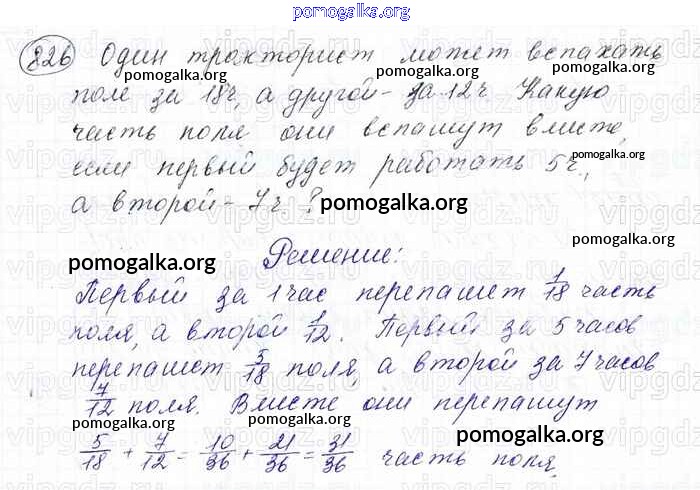 pomogalka.org
826 Один тракторист может вспахать
pomogalka.org pomogalka.org
поле за 18ч, а другой - за 12ч Какую
часть поля они вспашут вместе,
pomogalka.org
если первый будет работать 5ч.,
а второй - 7ч? pomogalka.org
Решение:
pomogalka.org
Первый за 1 час перепашет 1/18 часть
поля, а второй 1/12. Первый за 5 часов
перепашет 5/18 поля, а второй за 7 часов
7/12 поля. Вместе они перепашут
pomogalka.org pomogalka.org
5/18 + 7/12 = 10/36 + 21/36 = 31/36 часть поля.
pomogalka.org